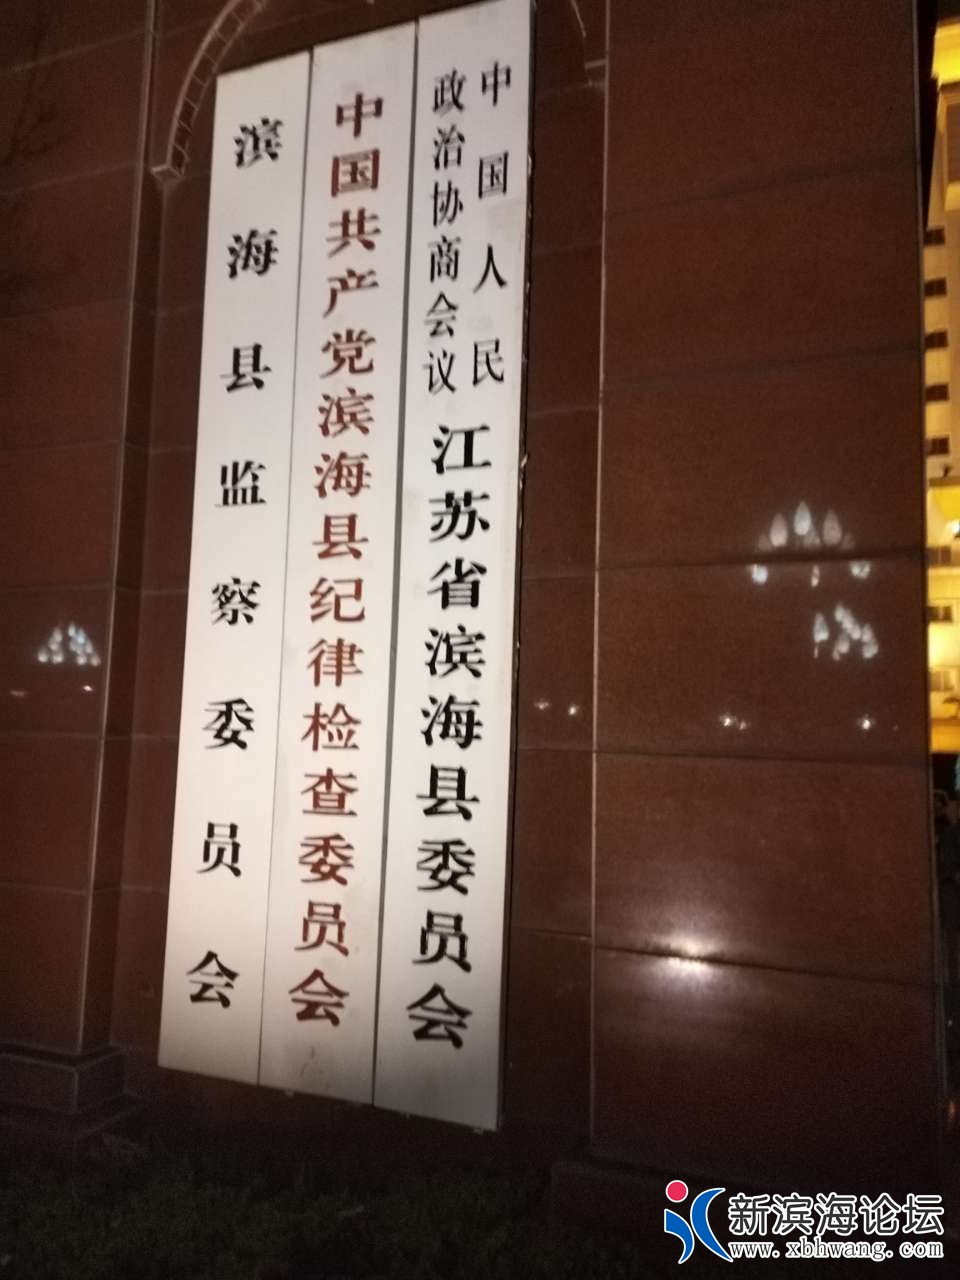 中国人民
政治协商会议
江苏省滨海县委员会
中国共产党滨海县纪律检查委员会
滨海县监察委员会
新滨海论坛
www.xbhwang.com